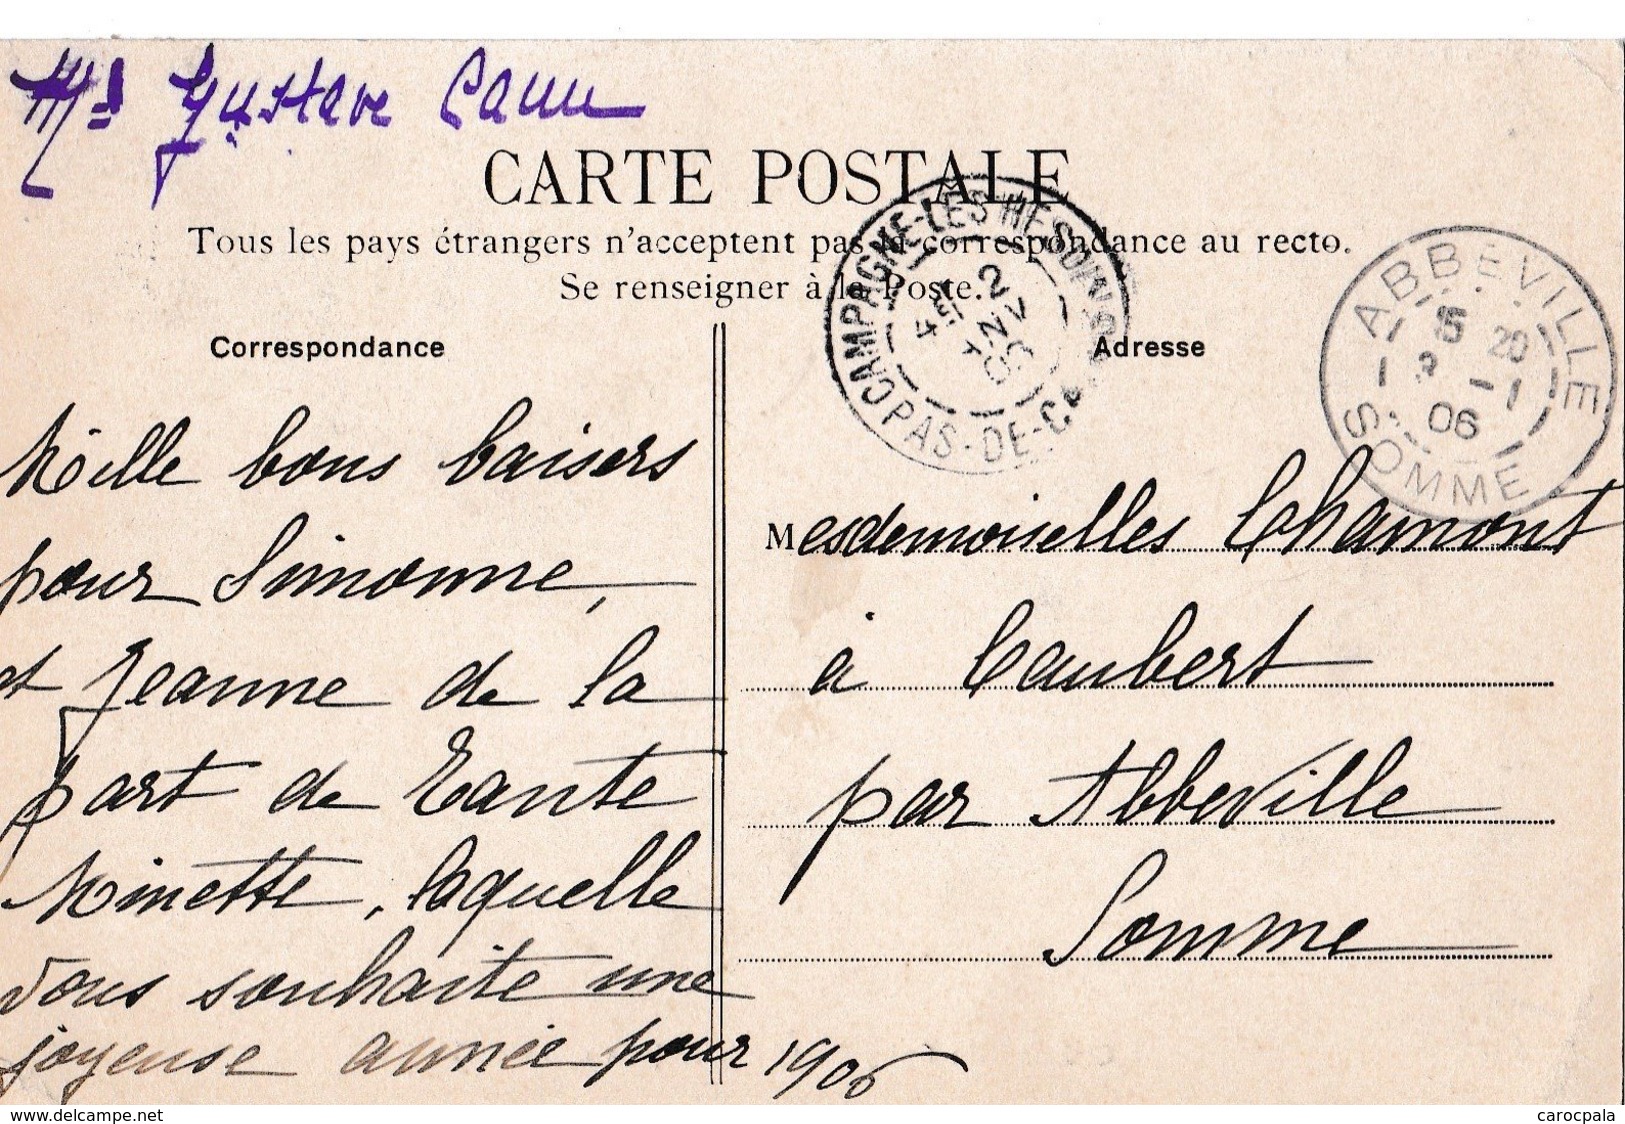 Gustave
CARTE POSTALE
Tous les pays étrangers n'acceptent pas la correspondance au recto.
Se renseigner à la Poste.
CAMPAGNE-LES-HESDIN
PAS-DE-CA
2
ABBEVILLE
15 20
3 -1
06
SOMME
Correspondance
Adresse
Mille bons baisers
pour Simonne,
et Jeanne de la
part de Tante
Minette, laquelle
vous souhaite une
joyeuse année pour 1906
Mesdemoiselles Chamont
à Caubert
par Abbeville
Somme
www.delcampe.net
carocpala